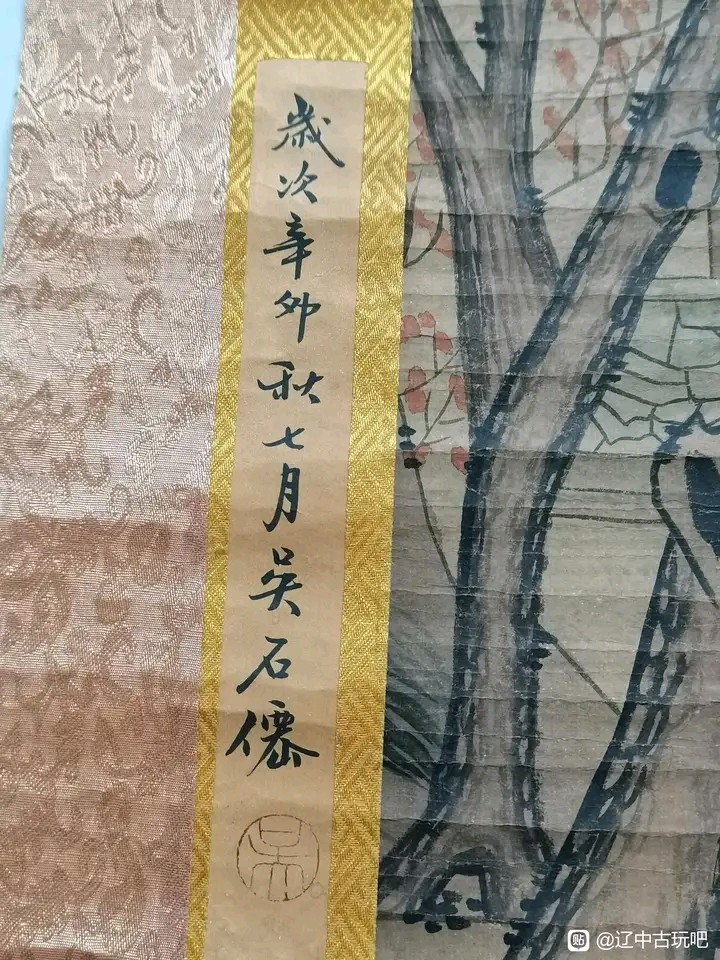 歲次辛卯秋七月吳石僊
吳
貼 @辽中古玩吧